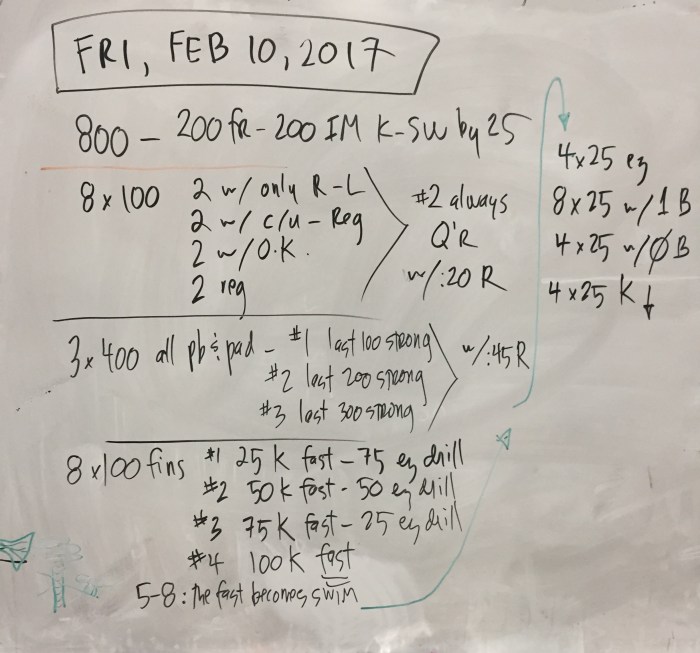 FRI, FEB 10, 2017
800 - 200 fr - 200 IM K-SW by 25
8 x 100 2 w/ only R-L
2 w/ c/u - Reg
2 w/ O.K.
2 reg
#2 always
Q'R
w/:20 R
3 x 400 all pb & pad - #1 last 100 strong
#2 last 200 strong
#3 last 300 strong
w/:45 R
8 x 100 fins #1 25 K fast - 75 ez drill
#2 50 K fast - 50 ez drill
#3 75 K fast - 25 ez drill
#4 100 K fast
5-8: the fast becomes SWIM
4 x 25 ez
8 x 25 w/ 1 B
4 x 25 w/ Ø B
4 x 25 K ↓